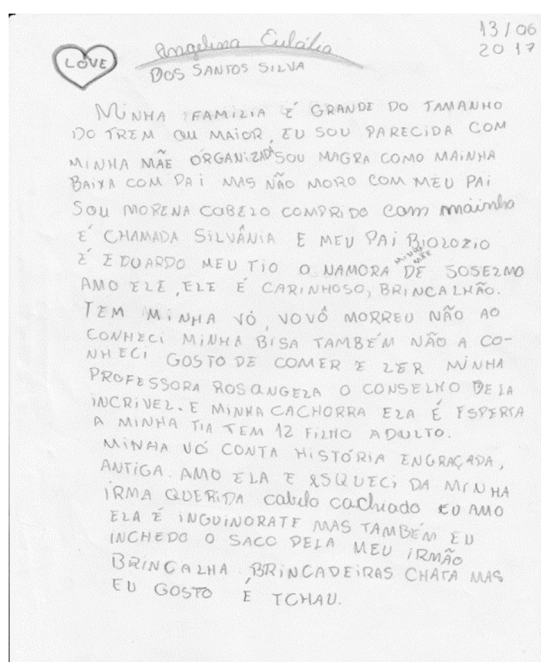 13/06
2017
LOVE
Angelina Eulália
DOS SANTOS SILVA
MINHA FAMILIA É GRANDE DO TAMANHO
DO TREM OU MAIOR, EU SOU PARECIDA COM
MINHA MÃE ORGANIZADA SOU MAGRA COMO MAINHA
BAIXA COM PAI MAS NÃO MORO COM MEU PAI
SOU MORENA CABELO COMPRIDO com máinha
É CHAMADA SILVÂNIA E MEU PAI BIOLOZIO
É EDUARDO MEU TIO O NAMORA DE MINHA MÃE JOSELMO
AMO ELE, ELE É CARINHOSO, BRINCALHÃO.
TEM MINHA VÓ, VOVÔ MORREU NÃO AO
CONHECI MINHA BISA TAMBÉM NÃO A CO-
NHECI GOSTO DE COMER E LER MINHA
PROFESSORA ROSANGELA O CONSELHO DELA
INCRIVEL. E MINHA CACHORRA ELA É ESPERTA
A MINHA TIA TEM 12 FILHO ADULTO.
MINHA VÓ CONTA HISTÓRIA ENGRAÇADA,
ANTIGA. AMO ELA E ESQUECI DA MINHA
IRMA QUERIDA cabelo cachiado EU AMO
ELA É INGUINORATE MAS TAMBÉM EU
INCHEDO O SACO DELA MEU IRMÃO
BRINCALHA, BRINCADEIRAS CHATA MAS
EU GOSTO E TCHAU.